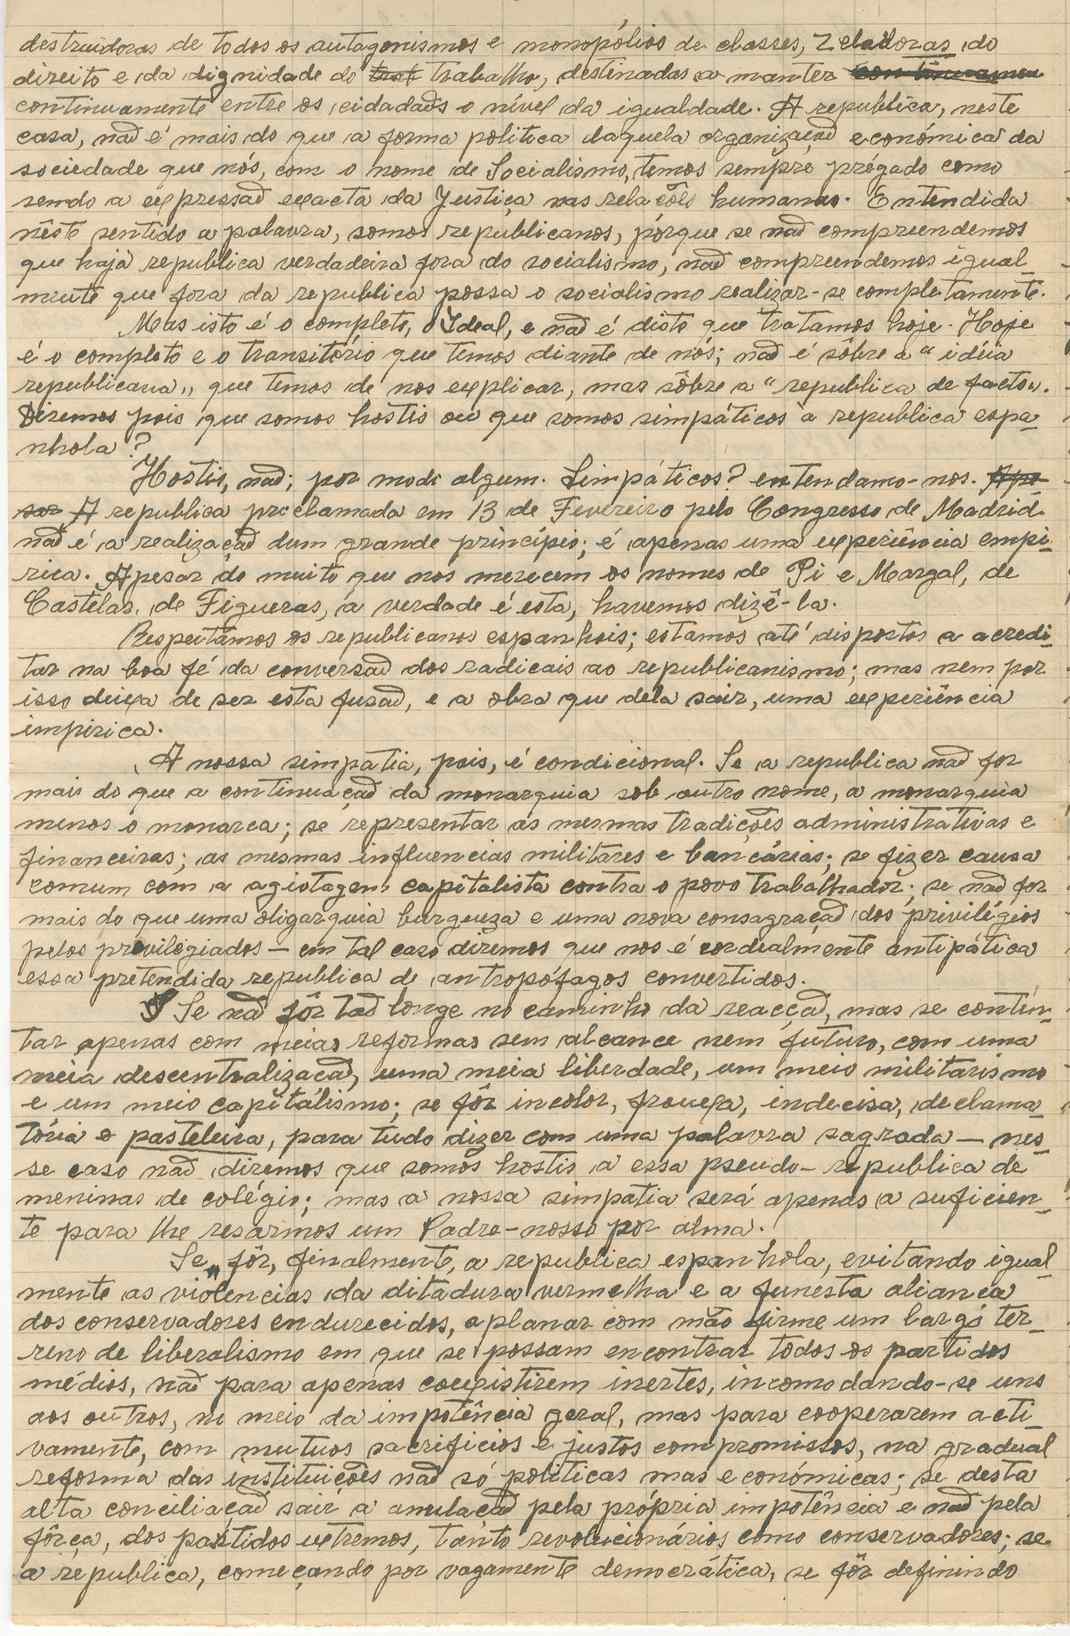 destruidoras de todos os antagonismos e monopólios de classes, zeladoras do
direito e da dignidade do trabalho, destinadas a manter
continuamente entre os cidadaõs o nível da igualdade. A republica, neste
caso, naõ é mais do que a forma politica daquela organizaçaõ económica da
sociedade que nós, com o nome de Socialismo, temos sempre prégado como
sendo a expressaõ exacta da Justiça nas relações humanas. Entendida
nêste sentido a palavra, somos republicanos, pórque se naõ compreendemos
que haja republica verdadeira fora do socialismo, naõ compreendemos igual-
mente que fora da republica possa o socialismo realizar-se completamente.
Mas isto é o completo, o Ideal, e naõ é disto que tratamos hoje. Hoje
é o completo e o transitório que temos diante de nós; naõ é sôbre a "idéia
republicana" que temos de nos explicar, mas sôbre a "republica de facto".
Diremos pois que somos hostis ou que somos simpáticos a republica espa-
nhola?
Hostis, naõ; por modo algum. Simpáticos? entendamo-nos. Ape-
sar A republica proclamada em 13 de Fevereiro pelo Congresso de Madrid
naõ é a realizaçaõ dum grande princípio; é apenas uma experiência empi-
rica. Apesar do muito que nos merecem os nomes de Pi e Margal, de
Castelar, de Figueras, a verdade é esta, havemos dizê-la.
Respeitamos os republicanos espanhois; estamos até dispostos a acredi-
tar na boa fé da conversaõ dos radicais ao republicanismo; mas nem por
isso deixa de ser esta fusaõ, e a obra que dela sair, uma experiência
impirica.
A nossa simpatia, pois, é condicional. Se a republica naõ for
mais do que a continuaçaõ da monarquia sob outro nome, a monarquia
menos o monarca; se representar as mesmas tradições administrativas e
financeiras; as mesmas influencias militares e bancárias; se fizer causa
comum com a agiotagem capitalista contra o povo trabalhador; se naõ for
mais do que uma oligarquia burgueza e uma nova consagraçaõ dos privilégios
pelos privilegiados — em tal caso diremos que nos é cordialmente antipática
essa pretendida republica de antropófagos convertidos.
Se naõ fôr taõ longe no caminho da reacçaõ, mas se conten-
tar apenas com meias reformas sem alcance nem futuro, com uma
meia descentralizacaõ, uma meia liberdade, um meio militarismo
e um meio capitalismo; se fôr incolor, frouxa, indecisa, declama-
tória e pasteleira, para tudo dizer com uma palavra sagrada — nes-
se caso naõ diremos que somos hostis a essa pseudo-republica de
meninas de colégio; mas a nossa simpatia será apenas a suficien-
te para lhe resarmos um Padre-nosso por alma.
Se, fôr, finalmente, a republica espanhola, evitando igual-
mente as violencias da ditadura vermelha e a funesta aliança
dos conservadores endurecidos, aplanar com mão firme um largo ter-
reno de liberalismo em que se possam encontrar todos os partidos
médios, naõ para apenas coexistirem inertes, incomodando-se uns
aos outros, no meio da impotência geral, mas para cooperarem acti-
vamente, com mutuos sacrificios e justos compromissos, na gradual
reforma das instituicões naõ só politicas mas económicas; se desta
alta conciliaçaõ sair a anulaçaõ pela própria impotência e naõ pela
fôrça, dos partidos extremos, tanto revolucionários como conservadores; se
a republica, começando por vagamente democrática, se fôr definindo